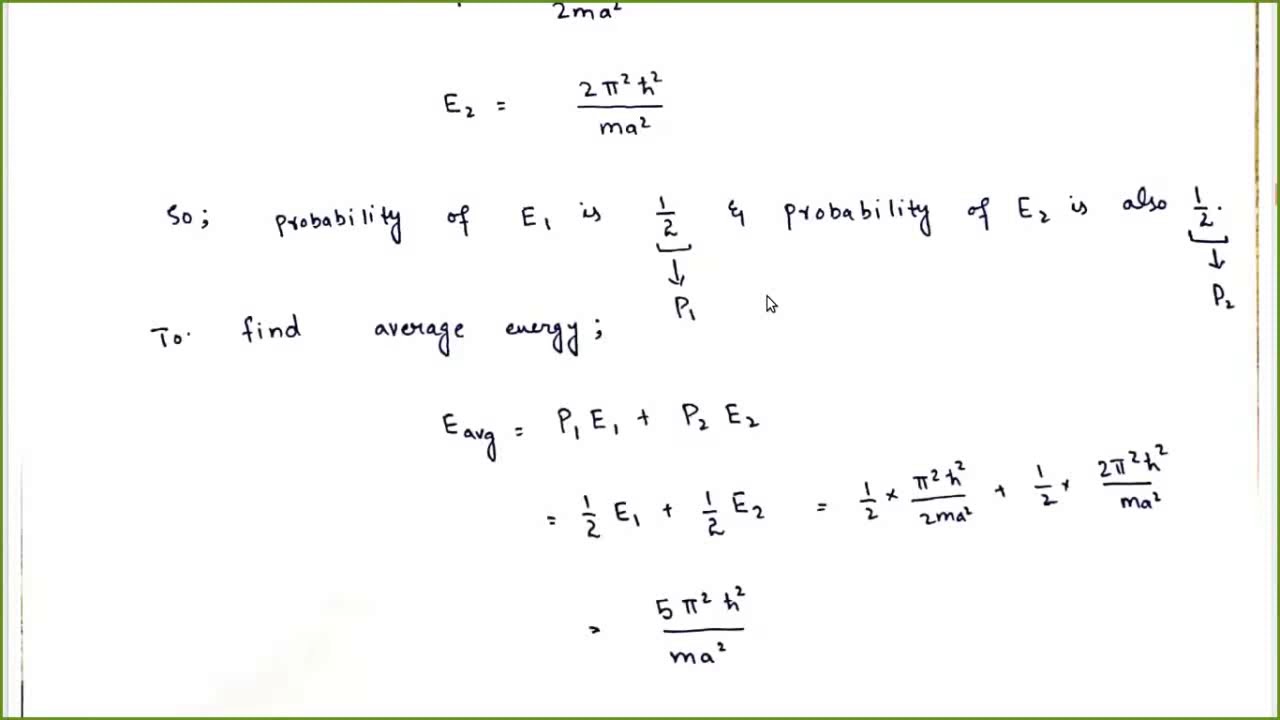 2ma²
E₂ = 2π²ħ² / ma²
So; probability of E₁ is 1/2 & probability of E₂ is also 1/2.
↓ P₁ ↓ P₂
To find average energy;
E avg = P₁ E₁ + P₂ E₂
= 1/2 E₁ + 1/2 E₂ = 1/2 × π²ħ² / 2ma² + 1/2 × 2π²ħ² / ma²
= 5π²ħ² / ma²